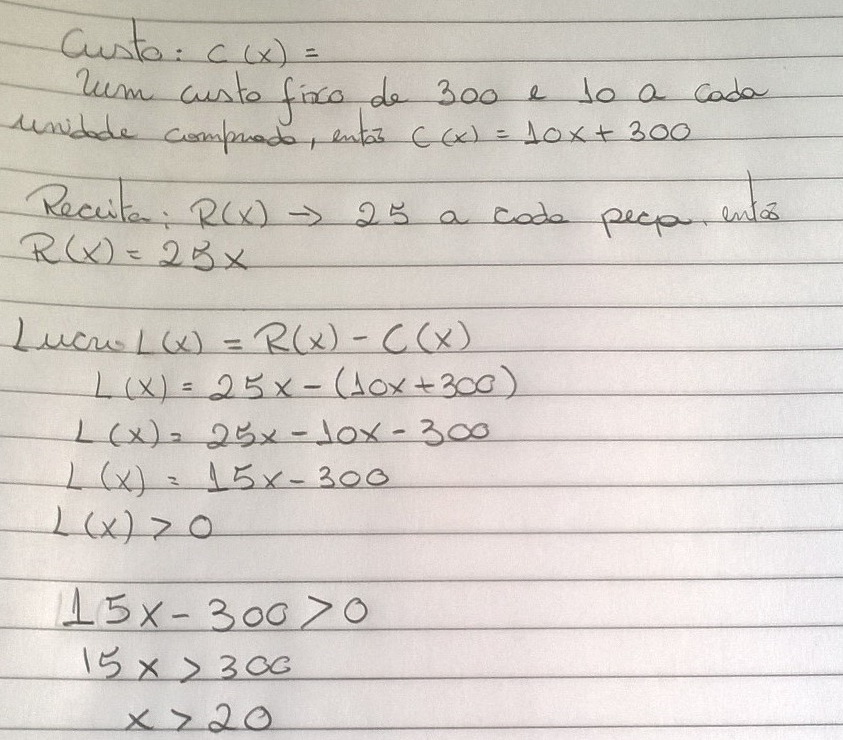 Custo: C(x) =
Num custo fixo de 300 e 10 a cada
unidade comprada, então C(x) = 10x + 300
Receita: R(x) → 25 a cada peça, então
R(x) = 25x
Lucro L(x) = R(x) - C(x)
L(x) = 25x - (10x + 300)
L(x) = 25x - 10x - 300
L(x) = 15x - 300
L(x) > 0
15x - 300 > 0
15x > 300
x > 20